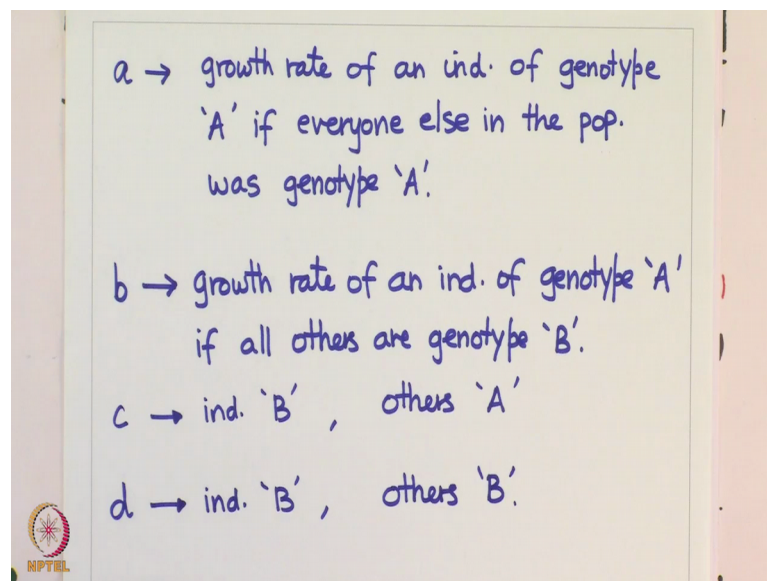 a → growth rate of an ind. of genotype
‘A’ if everyone else in the pop.
was genotype ‘A’.
b → growth rate of an ind. of genotype ‘A’
if all others are genotype ‘B’.
c → ind. ‘B’ , others ‘A’
d → ind. ‘B’ , others ‘B’.
NPTEL